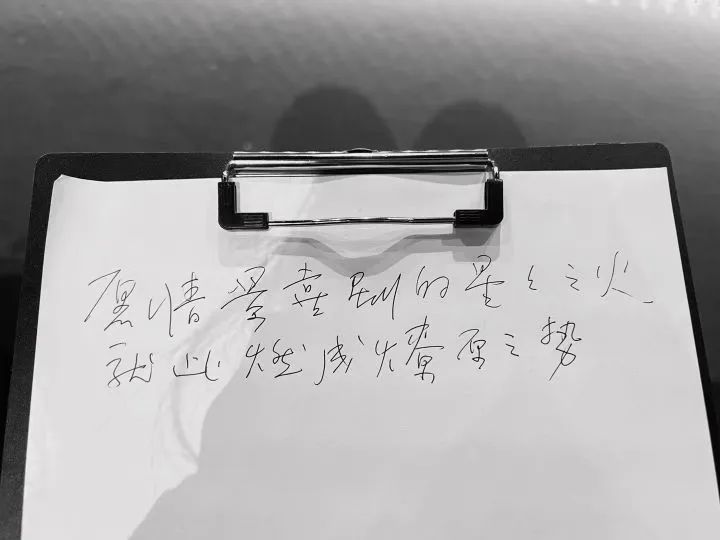 愿情景喜剧的星星之火
就此燃成燎原之势